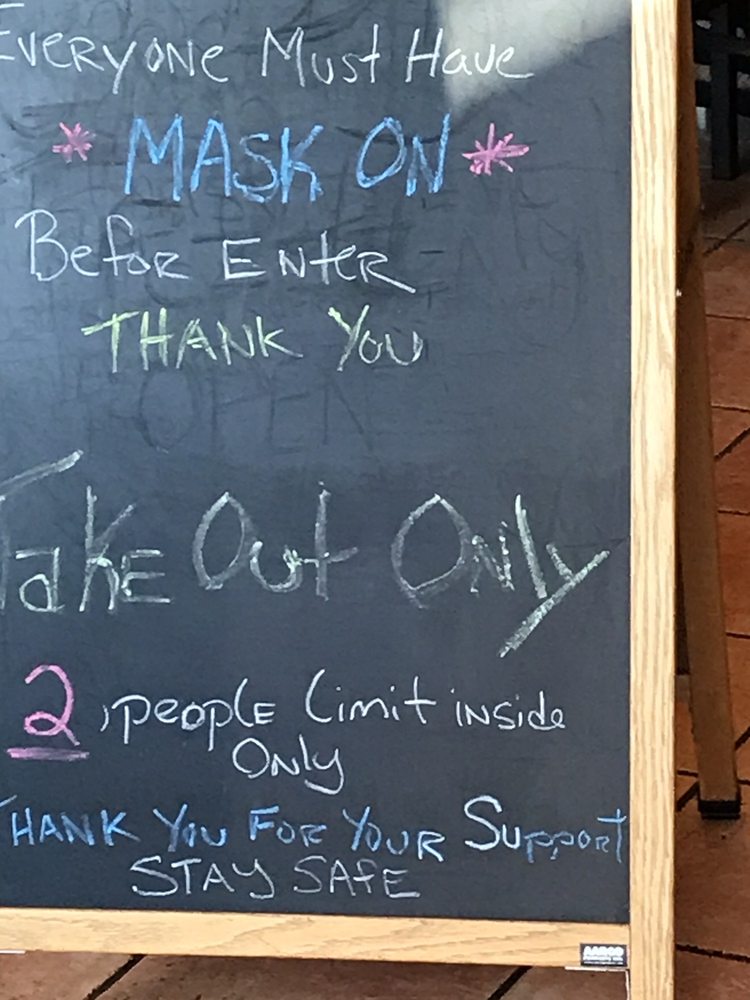 Everyone Must Have
* MASK ON *
Befor Enter
THANK You
Take Out Only
2 people limit inside
Only
THANK You For Your Support
STAY SAFE
AARCO